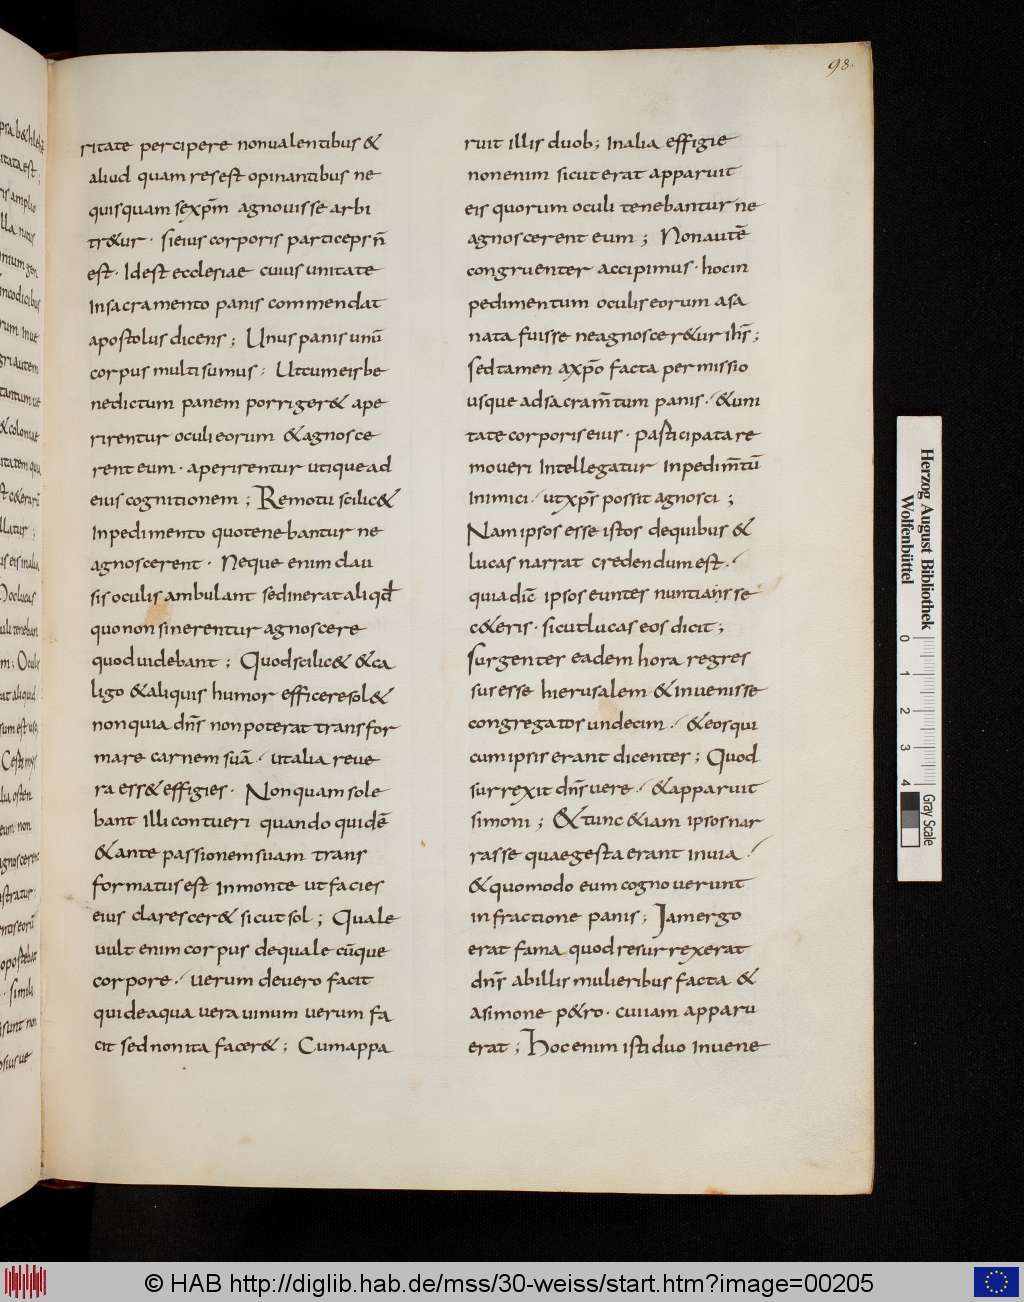 98.
ritate percipere nonualentibus &
aliud quam resest opinantibus ne
quisquam sexpm̄ agnouisse arbi
tr&ur · sieius corporis particeps n̄
est · Idest ecclesiae cuius unitate
insacramento panis commendat
apostolus dicens ; Unus panis unū
corpus multi sumus · Utcumeisbe
nedictum panem porriger& ape
rirentur oculi eorum &agnosce
rent eum · aperirentur utique ad
eius cognitionem ; Remotu scilic&
Inpedimento quotenebantur ne
agnoscerent · Neque enim clau
sis oculis ambulant sedinerat aliqd
quo non sinerentur agnoscere
quod uidebant ; Quodscilic& &ca
ligo &aliquis humor efficeresol&
non quia dn̄s non poterat transfor
mare carnem suā · utalia reue
ra ess& effigies · Non quam sole
bant illi contueri quando quidē
&ante passionem suam trans
formatus est Inmonte ut facies
eius clarescer& sicut sol ; Quale
uult enim corpus dequale cūque
corpore · uerum deuero facit
quideaqua uera uinum uerum fa
cit sed non ita facer& ; Cumappa
ruit illis duob; Inalia effigie
non enim sicut erat apparuit
eis quorum oculi tenebantur ne
agnoscerent eum ; Non autē
congruenter accipimus · hocin
pedimentum oculis eorum asa
nata fuisse neagnoscer&ur ih̄s ;
sed tamen axp̄o facta permissio
usque adsacram̄tum panis · &uni
tate corporis eius · participata re
moueri Intellegatur Inpedim̄tū
Inimici · utxp̄s possit agnosci ;
Nam ipsos esse istos dequibus &
lucas narrat credendum est ·
quia dic̄ ipsos euntes nuntians se
c&eris · sicut lucas eos dicit ;
surgenter eadem hora regres
sus esse hierusalem &inuenisse
congregatos undecim · &eos qui
cum ipsis erant dicentes ; Quod
surrexit dn̄s uere · &apparuit
simoni ; & tunc &iam ipsos nar
rasse quae gesta erant inuia ·
&quomodo eum cognouerunt
in fractione panis ; Iam ergo
erat fama quod resurrexerat
dn̄s abillis mulieribus facta &
asimone p&ro · cuiiam apparu
erat ; hoc enim isti duo Inuene
Herzog August Bibliothek
Wolfenbüttel
0 1 2 3 4
Gray Scale
© HAB http://diglib.hab.de/mss/30-weiss/start.htm?image=00205